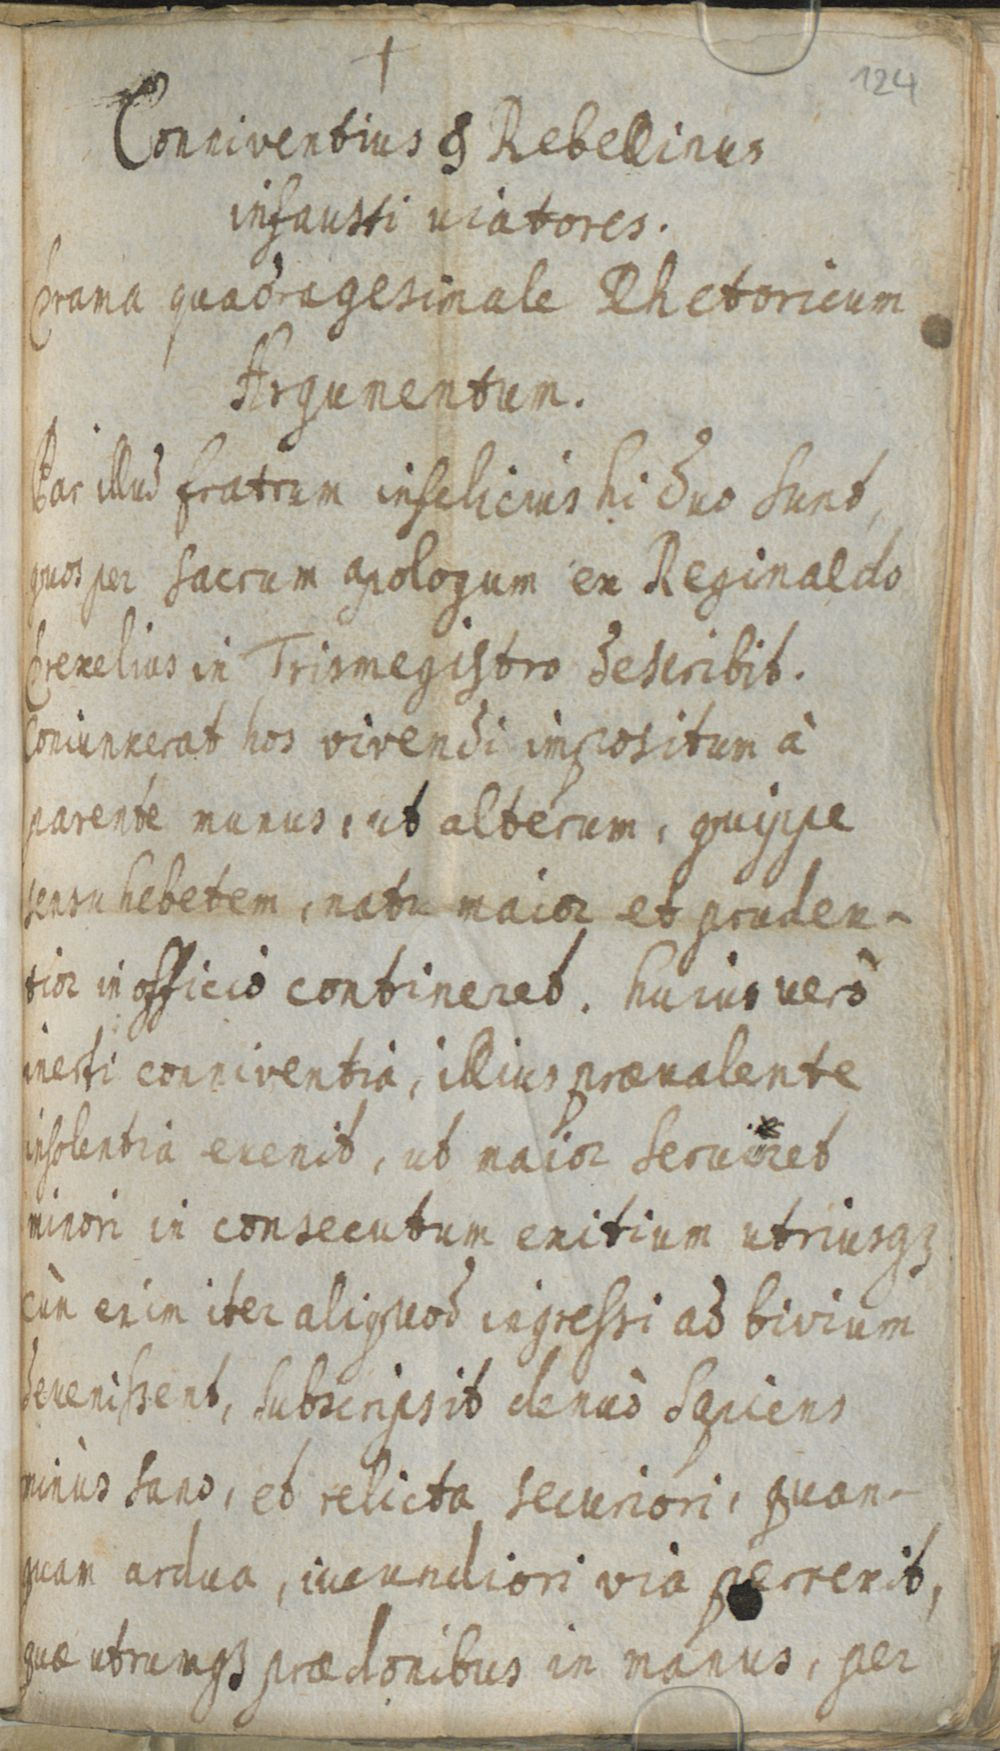 †
124
Conniventius & Rebellinus
infausti uiatores.
Drama quadragesimale Rhetoricum
Argumentum.
Par illud fratrum infelicius hi duo sunt,
quos per sacrum apologum ex Reginaldo
Drexelius in Trismegistro describit.
Coniunxerat hos vivendi impositum à
parente munus, ut alterum, quippe
sensu hebetem, natu maior et pruden-
tior in officio contineret. huius verò
inerti conniventià, illius præualente
insolentia evenit, ut maior serviret
minori in consecutum exitium utriusqꝫ
cùm enim iter aliquod ingressi ad bivium
devenissent, subscripsit denuò sapiens
minùs sano, et relicta securiori, quan-
quam ardua, iucundiori via perrexit,
quæ utrumqꝫ prædonibus in manus, per